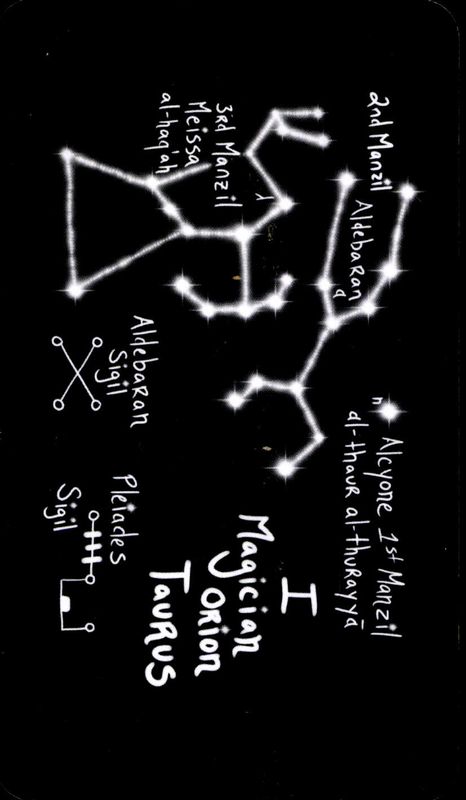 2nd Manzil
Aldebaran
α
η Alcyone 1st Manzil
al-thaur al-thurayyā
λ
3rd Manzil
Meissa
al-haq'ah
I
Magician
Orion
Taurus
Aldebaran
Sigil
Pleiades
Sigil